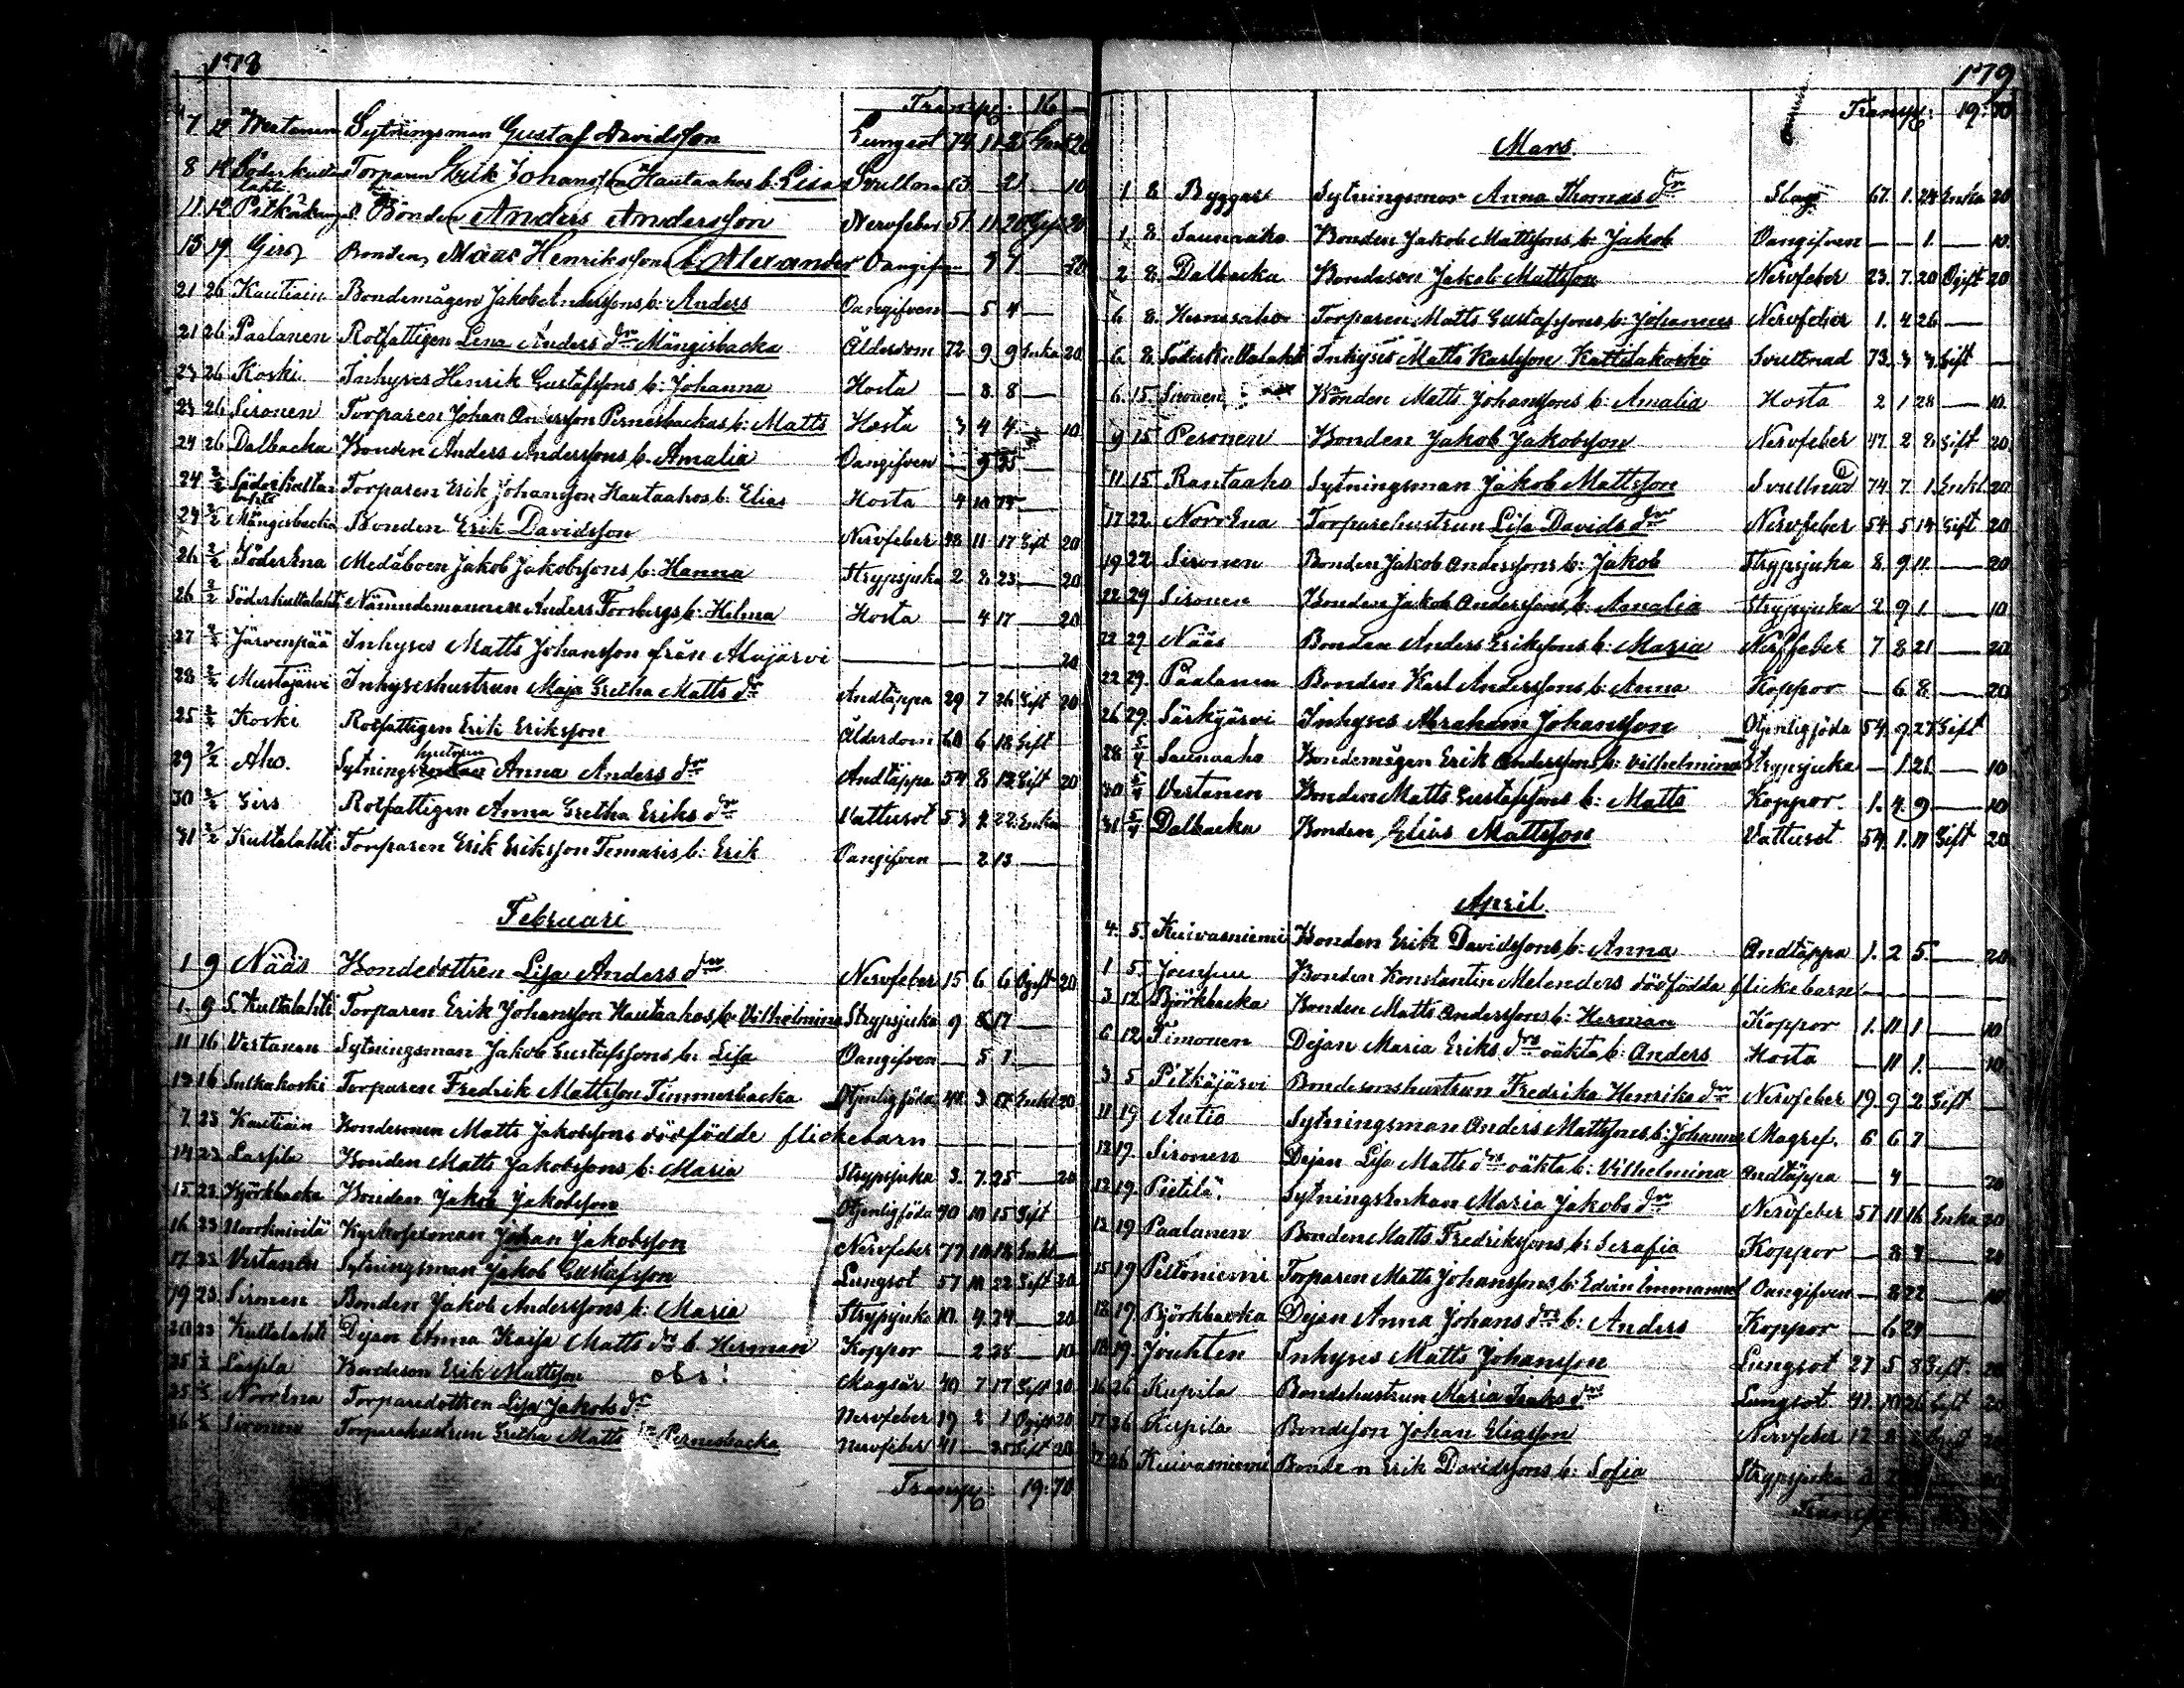 178
Transp: 16 —
7 12 Wertanen Sytningsman Gustaf Davidsson Lungsot 74 11 20
8 12 Söderkulta lahti Torparen Erik Johansson Hautaahos b: Lisa Svullnad 13 — 21 — 10
11 12 Bonden Anders Andersson Nervfeber 51 11 20 Gift 20
13 19 Girs Bonden Maas Henrikssons b: Alexander Oangifven — 20
21 26 Kautiain Bondemågen Jakob Anderssons b: Anders Oangifven — 5 4 —
21 26 Paalanen Rotfattigen Lena Anders dr Mängisbacka Ålderdom 72 9 9 Enka 20
23 26 Koski Inhyses Henrik Gustafssons b: Johanna Hosta — 8 8 —
23 26 Sironen Torparen Johan Andersson Pernesbackas b: Matts Hosta 3 4 4 — 10
24 26 Dalbacka Bonden Anders Anderssons b. Amalia Oangifven — 9 25 —
24 2/2 Söderkulta lahti Torparen Erik Johansson Hautaahos b: Elias Hosta 4 10 —
24 2/2 Mängisbacka Bonden Erik Davidsson Nervfeber 48 11 17 Gift 20
26 2/2 Söderena Medåboen Jakob Jakobssons b: Hanna Strypsjuka 2 2 23 — 20
26 2/2 Söderkultalahti Nämndemannen Anders Forsbergs b: Hilma Hosta — 4 17 — 20
27 2/2 Järvenpää Inhyses Matts Johansson från Alajärvi — 20
28 2/2 Mustajärvi Inhyseshustrun Maja Gretha Matts dr Andtäppa 29 7 26 Gift 20
25 2/2 Koski Rotfattigen Erik Eriksson Ålderdom 60 6 18 Gift
29 2/2 Aho. Sytningshustrun Anna Anders dr Andtäppa 54 8 12 Gift 20
30 2/2 Girs Rotfattigen Anna Gretha Eriks dr Vattusot 53 2 22 Enka
31 2/2 Kultalahti Torparen Erik Eriksson Temaris b: Erik Oangifven — 2 13 —
Februari
1 9 Nääs Bondedottren Lisa Anders dr Nervfeber 15 6 6 Ogift 20
1 9 S. Kultalahti Torparen Erik Johansson Hautaahos b: Vilhelmina Strypsjuka 9 8 17 —
11 16 Vertanen Sytningsman Jakob Gustafssons b: Lisa Oangifven — 5 1 —
13 16 Sulkakoski Torparen Fredrik Mattsson Timmerbacka Otjenlig föda 44 3 17 Enkl 20
7 23 Kautiain Bondesonen Matts Jakobssons dödfödde flickebarn —
14 23 Lassila Bonden Matts Jakobssons b: Maria Strypsjuka 3 7 25 — 20
15 23 Björkbacka Bonden Jakob Jakobsson Otjenlig föda 40 10 15 Gift
16 23 Kyrkofexman Johan Jakobsson Nervfeber 77 10 18 Enkl —
17 23 Vertanen Sytningsman Jakob Gustafsson Lungsot 57 10 22 Gift 20
19 23 Sironen Bonden Jakob Anderssons b: Maria Strypsjuka 10 9 24 — 20
20 23 Kultalahti Dejan Anna Kaisa Matts drs b: Herman Koppor — 2 28 — 10
25 Lassila Bondeson Erik Mattsson obs: Magsår 40 7 17 Gift 20
25 Norrena Torparedottren Lisa Jakobs dr Nervfeber 19 2 1 Ogift 20
26 Sironen Torparehustrun Gretha Matts dr Pernesbacka Nervfeber 41 — Gift 20
Transp: 19:70
179
Transp: 19:70
Mars.
1 8 Byggar Sytningsmor Anna Thomas dr Slag 67 1 24 Enka 20
1 8 Saunaaho Bonden Jakob Mattssons b: Jakob Oangifven — — 1 — 10
2 8 Dalbacka Bondeson Jakob Mattsson Nervfeber 23 7 20 Ogift 20
6 8 Hernesaho Torparen Matts Gustafssons b: Johannes Nervfeber 1 4 26 —
6 8 Inhyses Matts Karlsson Kattilakoski Svullnad 73 3 3 Gift —
6 15 Sironen Bonden Matts Johanssons b: Amalia Hosta 2 1 28 — 10
9 15 Peronen Bonden Jakob Jakobsson Nervfeber 47 2 2 Gift 20
11 15 Rantaaho Sytningsman Jakob Mattsson Svullnad 74 7 1 Enkl 20
17 22 Norrena Torparehustrun Lisa Davids dr Nervfeber 54 5 14 Gift 20
19 22 Sironen Bonden Jakob Anderssons b: Jakob Strypsjuka 8 9 11 — 20
22 29 Sironen Bonden Jakob Anderssons b: Amalia Strypsjuka 2 9 1 — 10
22 29 Nääs Bonden Anders Erikssons b: Maria Nerffeber 7 8 21 — 20
22 29 Paalanen Bonden Karl Anderssons b: Anna Koppor — 6 8 — 20
26 29 Särkijärvi Inhyses Abraham Johansson Otjenlig föda 54 9 27 Gift
28 5/4 Saunaaho Bondemågen Erik Anderssons b: Vilhelmina Strypsjuka — 1 21 — 10
30 5/4 Vertanen Bonden Matts Gustafssons b: Matts Koppor 1 4 9 — 10
31 5/4 Dalbacka Bonden Elias Mattsson Vattusot 54 1 11 Gift 20
April.
4 5 Kuivasniemi Bonden Erik Davidssons b: Anna Andtäppa 1 2 5 — 20
1 5 Joensuu Bonden Konstantin Melenders dödfödda flickebarn —
3 12 Björkbacka Bonden Matts Anderssons b: Herman Koppor 1 11 1 — 10
6 12 Timonen Dejan Maria Eriks drs oäkta b: Anders Hosta — 11 1 — 10
3 5 Pitkäjärvi Bondesonshustrun Fredrika Henriks dr Nervfeber 19 9 2 Gift —
11 19 Autio Sytningsman Anders Mattssons b: Johannes Magref. 6 6 7 —
12 19 Sironen Dejan Lisa Matts drs oäkta b: Vilhelmina Andtäppa — 4 — 20
12 19 Pietilä Sytningsenkan Maria Jakobs dr Nervfeber 57 11 16 Enka 20
12 19 Paalanen Bonden Matts Fredrikssons b: Serafia Koppor — 8 4 — 20
15 19 Peltoniemi Torparen Matts Johanssons b: Edvin Emmanuel Oangifven — 8 22 — 10
18 19 Björkbacka Dejan Anna Johans drs b: Anders Koppor — 6 24
18 19 Jouhten Inhyses Matts Johansson Lungsot 27 5 8 Gift 20
16 26 Kupila Bondehustrun Maria Isaks dr Lungsot 41 10 26 Gift 20
17 26 Bondeson Johan Eliasson Nervfeber 12
17 26 Kuivasniemi Bonden Erik Davidssons b: Sofia Strypsjuka
Transp: